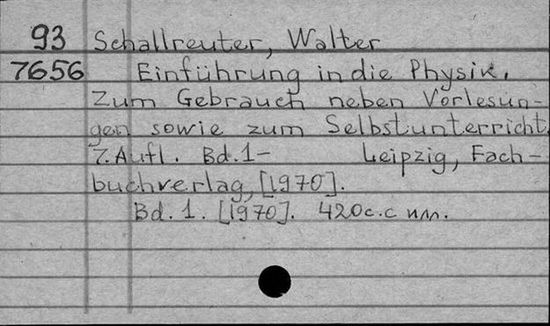 93 Schallreuter, Walter
7656 Einführung in die Physik.
Zum Gebrauch neben Vorlesun-
gen sowie zum Selbstunterricht.
7. Aufl. Bd. 1- Leipzig, Fach-
buchverlag, [1970].
Bd. 1. [1970]. 420 с. с илл.